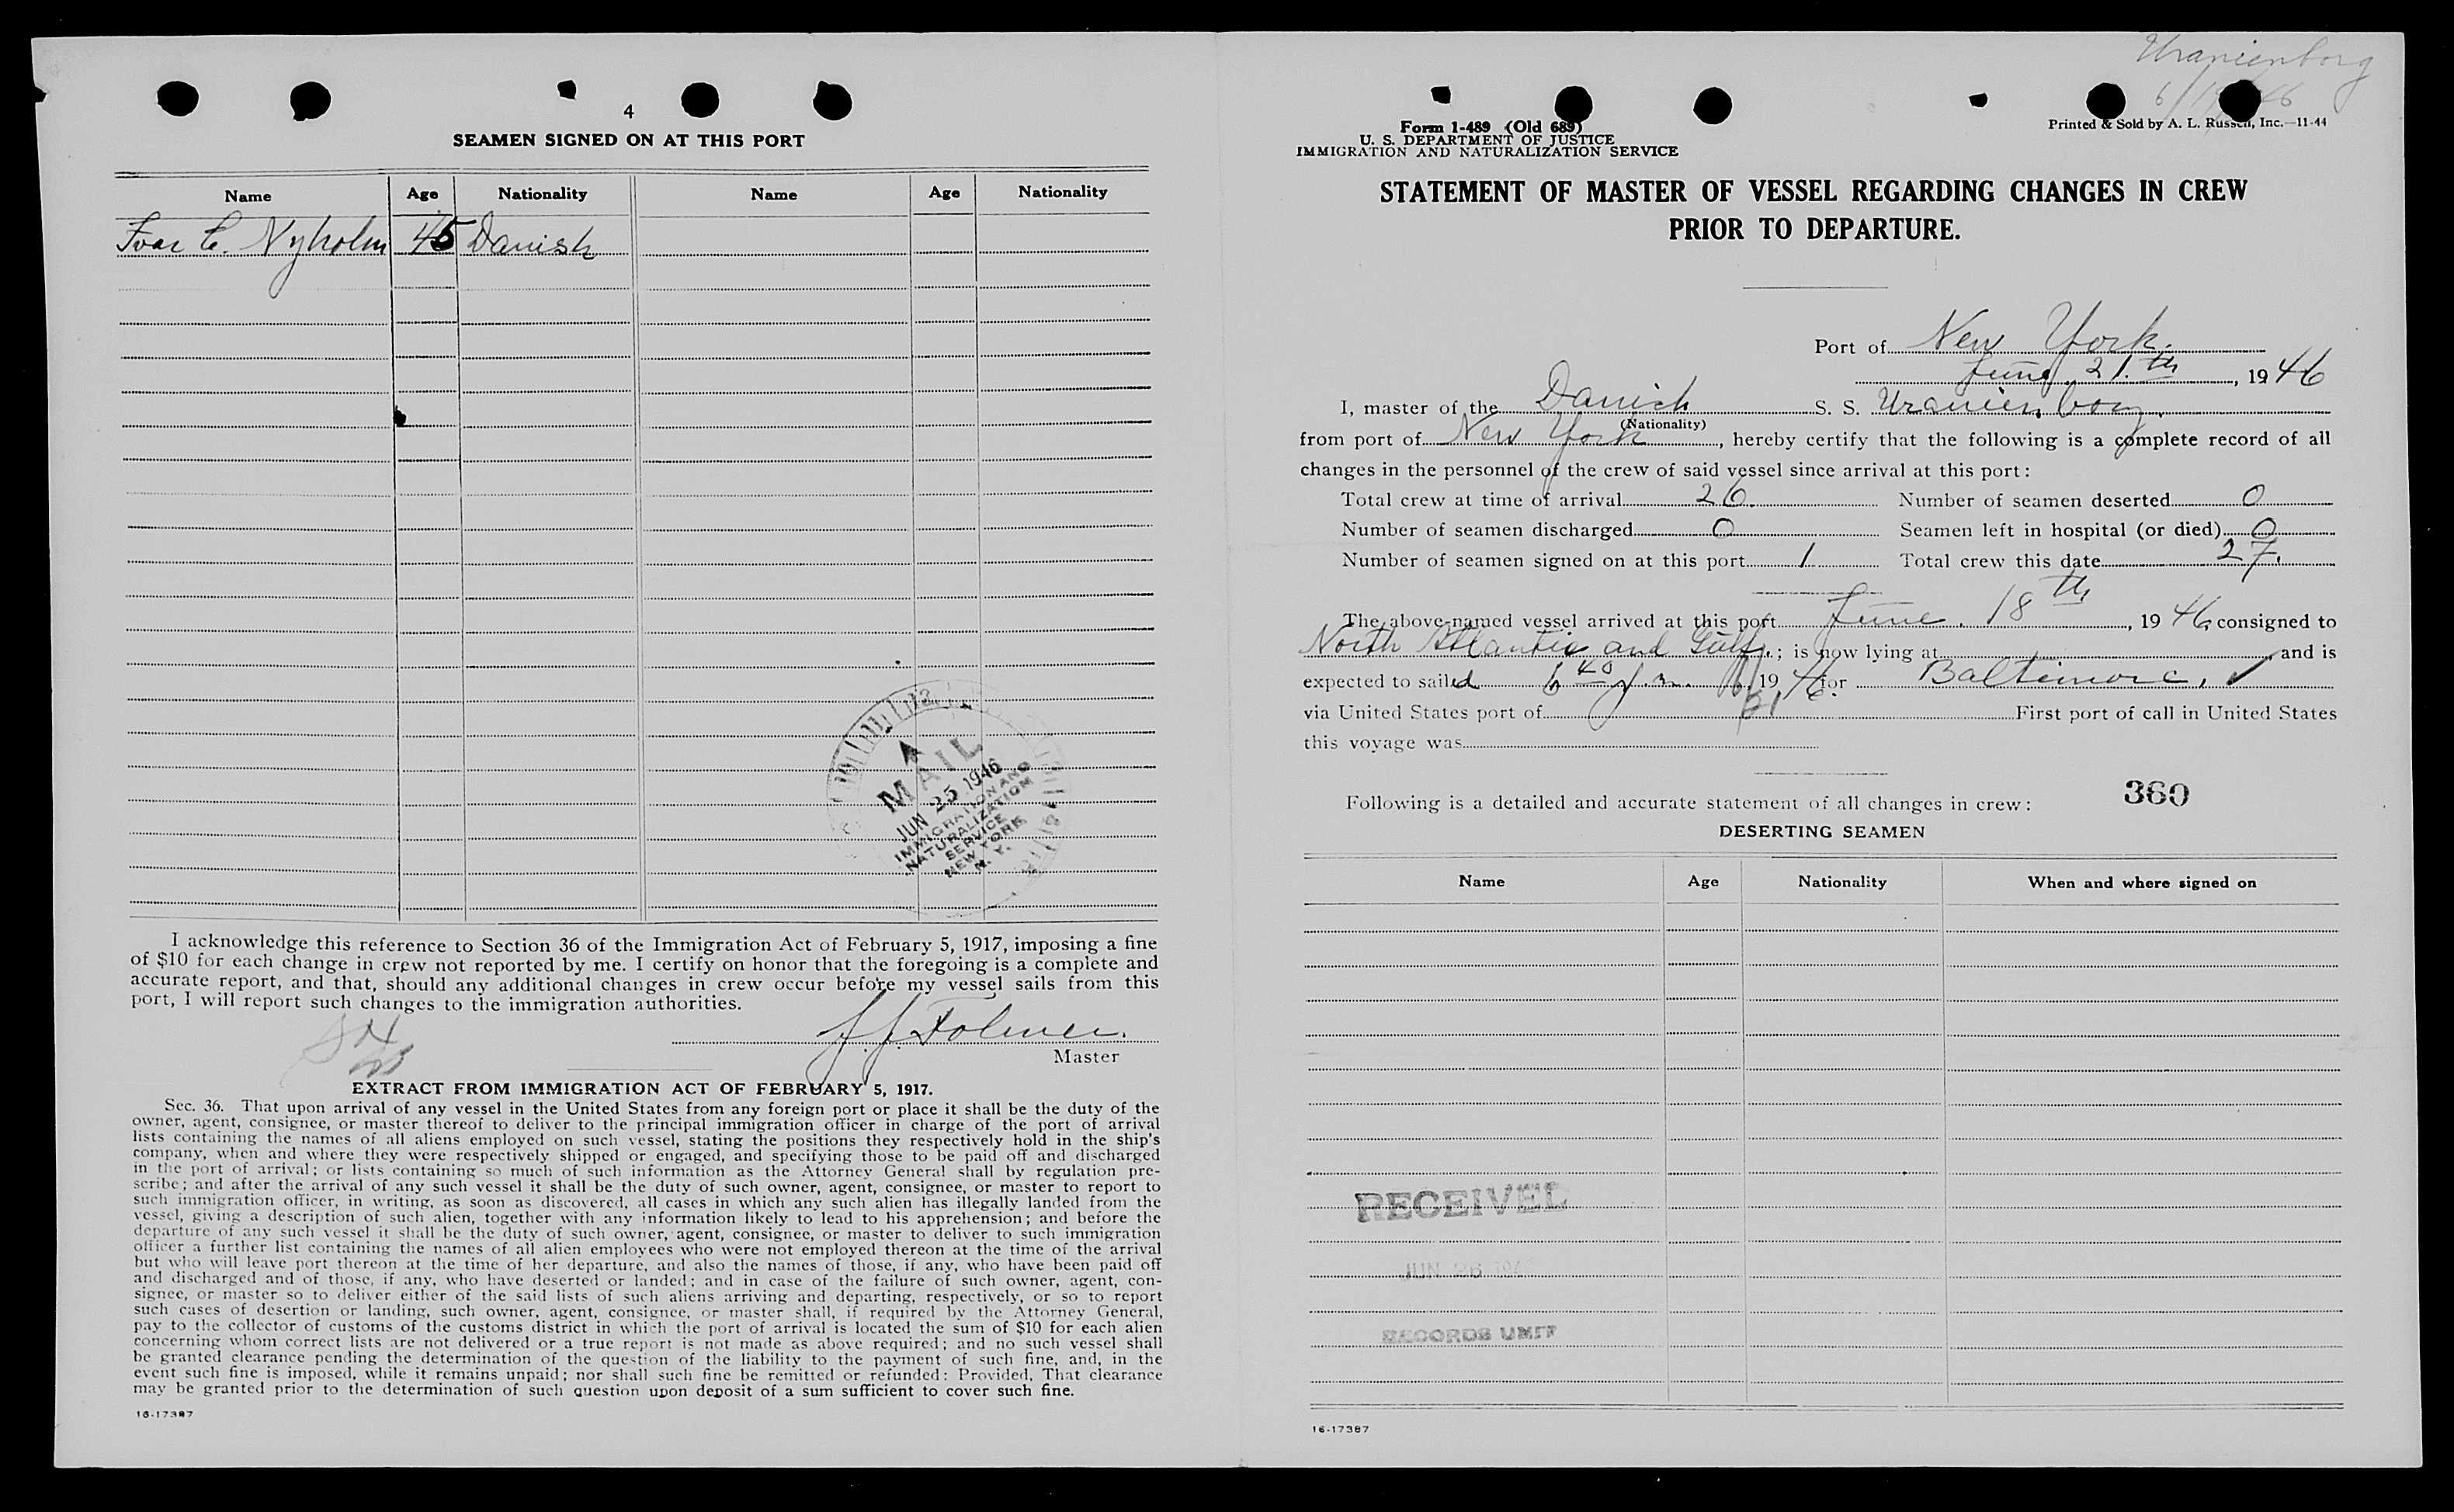 4
SEAMEN SIGNED ON AT THIS PORT
Name Age Nationality Name Age Nationality
Ivar C. Nyholm 45 Danish
MAIL
JUN 25 1946
IMMIGRATION AND
NATURALIZATION
SERVICE
NEW YORK
N. Y.
I acknowledge this reference to Section 36 of the Immigration Act of February 5, 1917, imposing a fine
of $10 for each change in crew not reported by me. I certify on honor that the foregoing is a complete and
accurate report, and that, should any additional changes in crew occur before my vessel sails from this
port, I will report such changes to the immigration authorities.
J. J. Folmer.
Master
EXTRACT FROM IMMIGRATION ACT OF FEBRUARY 5, 1917.
Sec. 36. That upon arrival of any vessel in the United States from any foreign port or place it shall be the duty of the
owner, agent, consignee, or master thereof to deliver to the principal immigration officer in charge of the port of arrival
lists containing the names of all aliens employed on such vessel, stating the positions they respectively hold in the ship's
company, when and where they were respectively shipped or engaged, and specifying those to be paid off and discharged
in the port of arrival; or lists containing so much of such information as the Attorney General shall by regulation pre-
scribe; and after the arrival of any such vessel it shall be the duty of such owner, agent, consignee, or master to report to
such immigration officer, in writing, as soon as discovered, all cases in which any such alien has illegally landed from the
vessel, giving a description of such alien, together with any information likely to lead to his apprehension; and before the
departure of any such vessel it shall be the duty of such owner, agent, consignee, or master to deliver to such immigration
officer a further list containing the names of all alien employees who were not employed thereon at the time of the arrival
but who will leave port thereon at the time of her departure, and also the names of those, if any, who have been paid off
and discharged and of those, if any, who have deserted or landed; and in case of the failure of such owner, agent, con-
signee, or master so to deliver either of the said lists of such aliens arriving and departing, respectively, or so to report
such cases of desertion or landing, such owner, agent, consignee, or master shall, if required by the Attorney General,
pay to the collector of customs of the customs district in which the port of arrival is located the sum of $10 for each alien
concerning whom correct lists are not delivered or a true report is not made as above required; and no such vessel shall
be granted clearance pending the determination of the question of the liability to the payment of such fine, and, in the
event such fine is imposed, while it remains unpaid; nor shall such fine be remitted or refunded: Provided, That clearance
may be granted prior to the determination of such question upon deposit of a sum sufficient to cover such fine.
16-17387
Uranienborg
Form 1-489 (Old 689)
U. S. DEPARTMENT OF JUSTICE
IMMIGRATION AND NATURALIZATION SERVICE
Printed & Sold by A. L. Russell, Inc.—11-44
STATEMENT OF MASTER OF VESSEL REGARDING CHANGES IN CREW
PRIOR TO DEPARTURE.
Port of New York.
June 21.th, 1946
I, master of the Danish S. S. Uranienborg.
(Nationality)
from port of New York, hereby certify that the following is a complete record of all
changes in the personnel of the crew of said vessel since arrival at this port:
Total crew at time of arrival 26. Number of seamen deserted 0
Number of seamen discharged 0 Seamen left in hospital (or died) 0
Number of seamen signed on at this port 1 Total crew this date 27.
The above-named vessel arrived at this port June. 18th, 1946, consigned to
North Atlantic and Gulf.; is now lying at and is
expected to sailed 6 40 p.m. 6/21 1946. for Baltimore. ✓
via United States port of First port of call in United States
this voyage was
Following is a detailed and accurate statement of all changes in crew: 360
DESERTING SEAMEN
Name Age Nationality When and where signed on
RECEIVED
JUN 26 194
RECORDS UNIT
16-17387